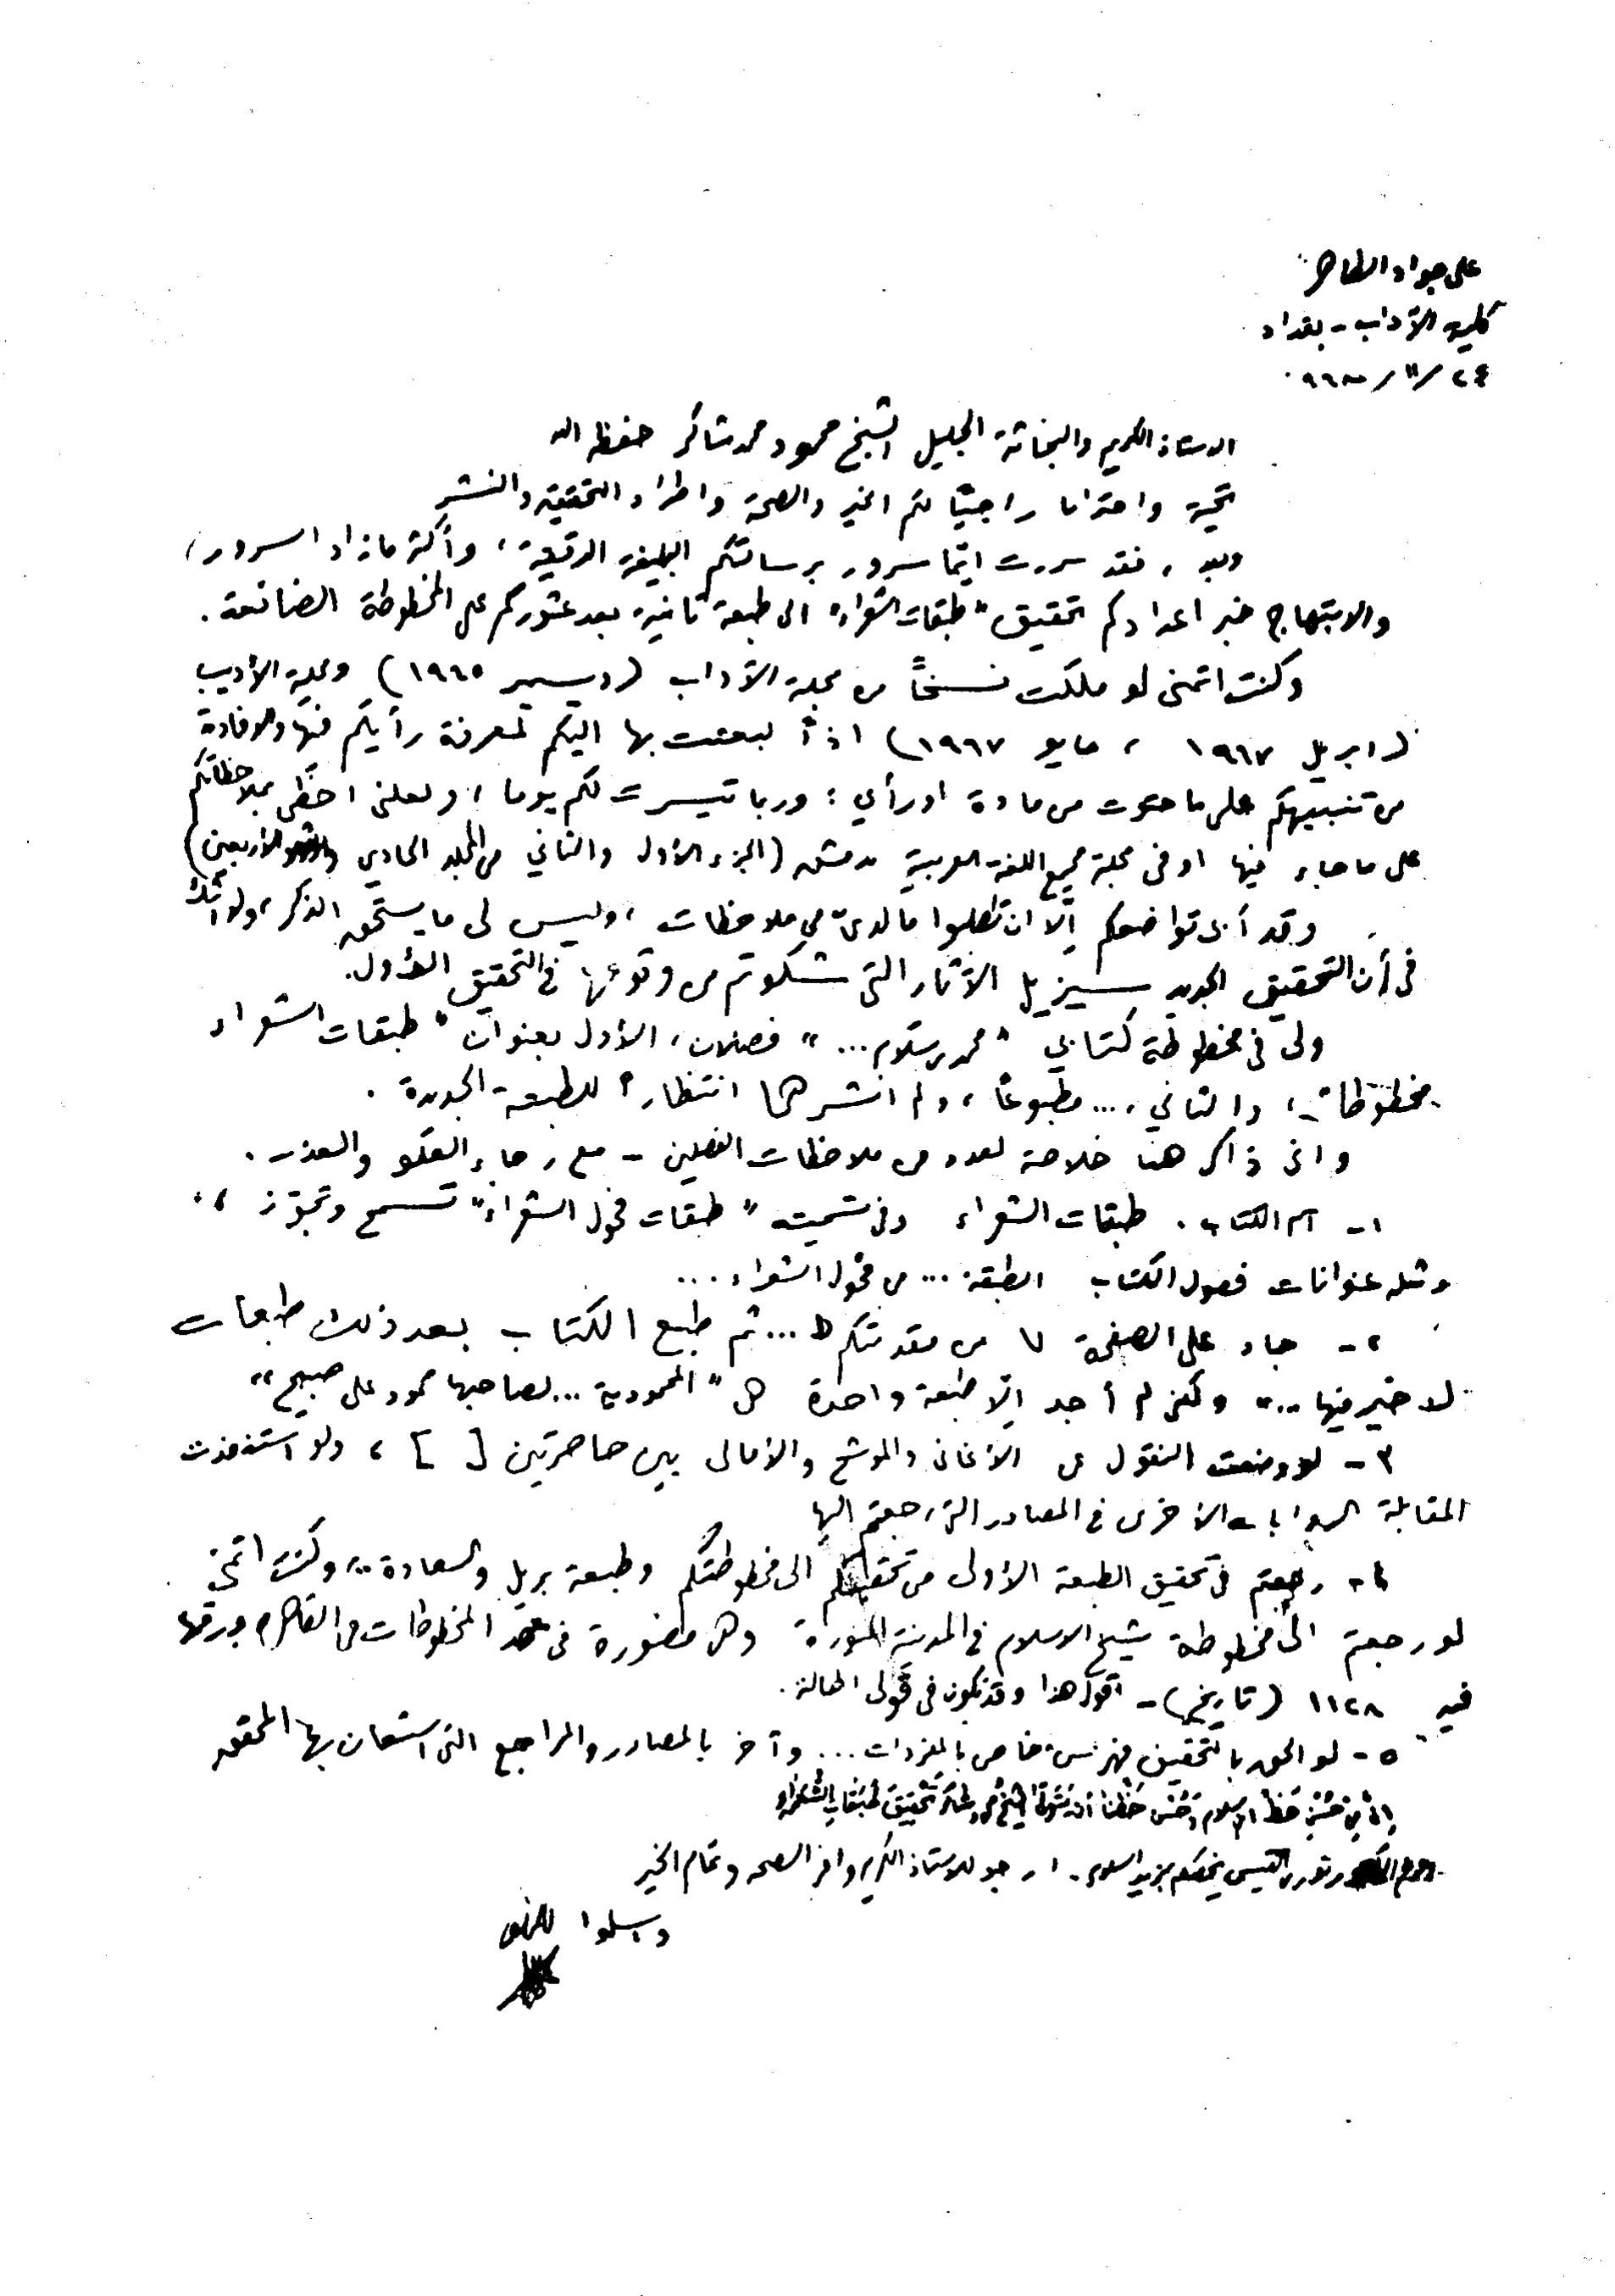 علي جواد الطاهر
كلية الآداب - بغداد
٢٤ / ١١ /
الاستاذ الكريم والبحاثة الجليل الشيخ محمود محمد شاكر حفظه الله
تحية واحتراما راجيًا لكم الخير والصحة واطراد التحقيق والنشر
وبعد ، فقد سررت ايّما سرور برسالتكم البليغة الرقيقة ، وأكثر ما زاد السرور
والابتهاج خبر اعدادكم تحقيق "طبقات الشعراء" الى طبعة ثانية بعد عثوركم على المخطوطة الضائعة .
وكنت اتمنى لو ملكت نسخًا من مجلة الآداب (ديسمبر ١٩٦٥) ومجلة الأديب
(ابريل ١٩٦٧ ، مايو ١٩٦٧) اذاً لبعثت بها اليكم لمعرفة رأيكم فيها والافادة
من تنبيهكم على ما حتوت من مادة او رأي ؛ وربما تيسرت لكم يوما ، ولعلني احظى بملاحظاتكم
على ما جاء فيها او في مجلة مجمع اللغة العربية بدمشق (الجزء الأول والثاني من المجلد الحادي والاربعين)
وقد أبى تواضعكم إلّا ان تطلبوا ما لديّ من ملاحظات ، وليس لي ما يستحق الذكر ، ولا أشك
في أن التحقيق الجديد سيزيل الآثار التي شكوتم من وقوعها في التحقيق الأول.
ولي في مخطوطة كتابي "محمد بن سلام ..." فصلان ، الأول بعنوان "طبقات الشعراء
مخطوطا" ، والثاني ... مطبوعًا ، ولم انشرهما انتظاراً للطبعة الجديدة .
واني ذاكر هنا خلاصة لعدد من ملاحظات الفصلين - مع رجاء العفو والعذر .
١ - اسم الكتاب . طبقات الشعراء وفي تسميته "طبقات فحول الشعراء" تسمح وتجوّز ،
ومثله عنوانات فصول الكتاب الطبقة ... من فحول الشعراء ...
٢ - جاء على الصفحة ٧ من مقدمتكم " ... ثم طبع الكتاب بعد ذلك طبعات
لا خير فيها ..." ولكني لم أجد إلّا طبعة واحدة هي "المحمودية ... لصاحبها محمود علي صبيح"
٣ - لو وضعت النقول عن الأغاني والموشح والأمالي بين حاصرتين [ ] ، ولو استنفذت
المقابلة الروايات الأخرى في المصادر التي رجعتم اليها
٤ - رجعتم في تحقيق الطبعة الأولى من تحقيقكم الى مخطوطتكم وطبعة بريل والسعادة .. ، وكنت اتمنى
لو رجعتم الى مخطوطة شيخ الاسلام في المدينة المنورة وهي مصورة في معهد المخطوطات في القاهرة ورقمها
فيه ١١٢٨ (تاريخ) - اقول هذا وقد تكون في قولي اطالة .
٥ - لو الحق بالتحقيق فهرس خاص بالمفردات ... وآخر بالمصادر والمراجع التي استعان بها المحقق
إنّ مِنْ حُسْنِ حَظّ ابن سلام وَحُسْنِ حَظِّنا أن يَتَولّى الشيخ محمود شاكر تحقيقَ طَبَقاتِ الشُّعَراءِ
نوري القيسي يخصكم بمزيد السلام . ارجو للاستاذ الكريم وافر الصحة وتمام الخير
واسلموا للمخلص